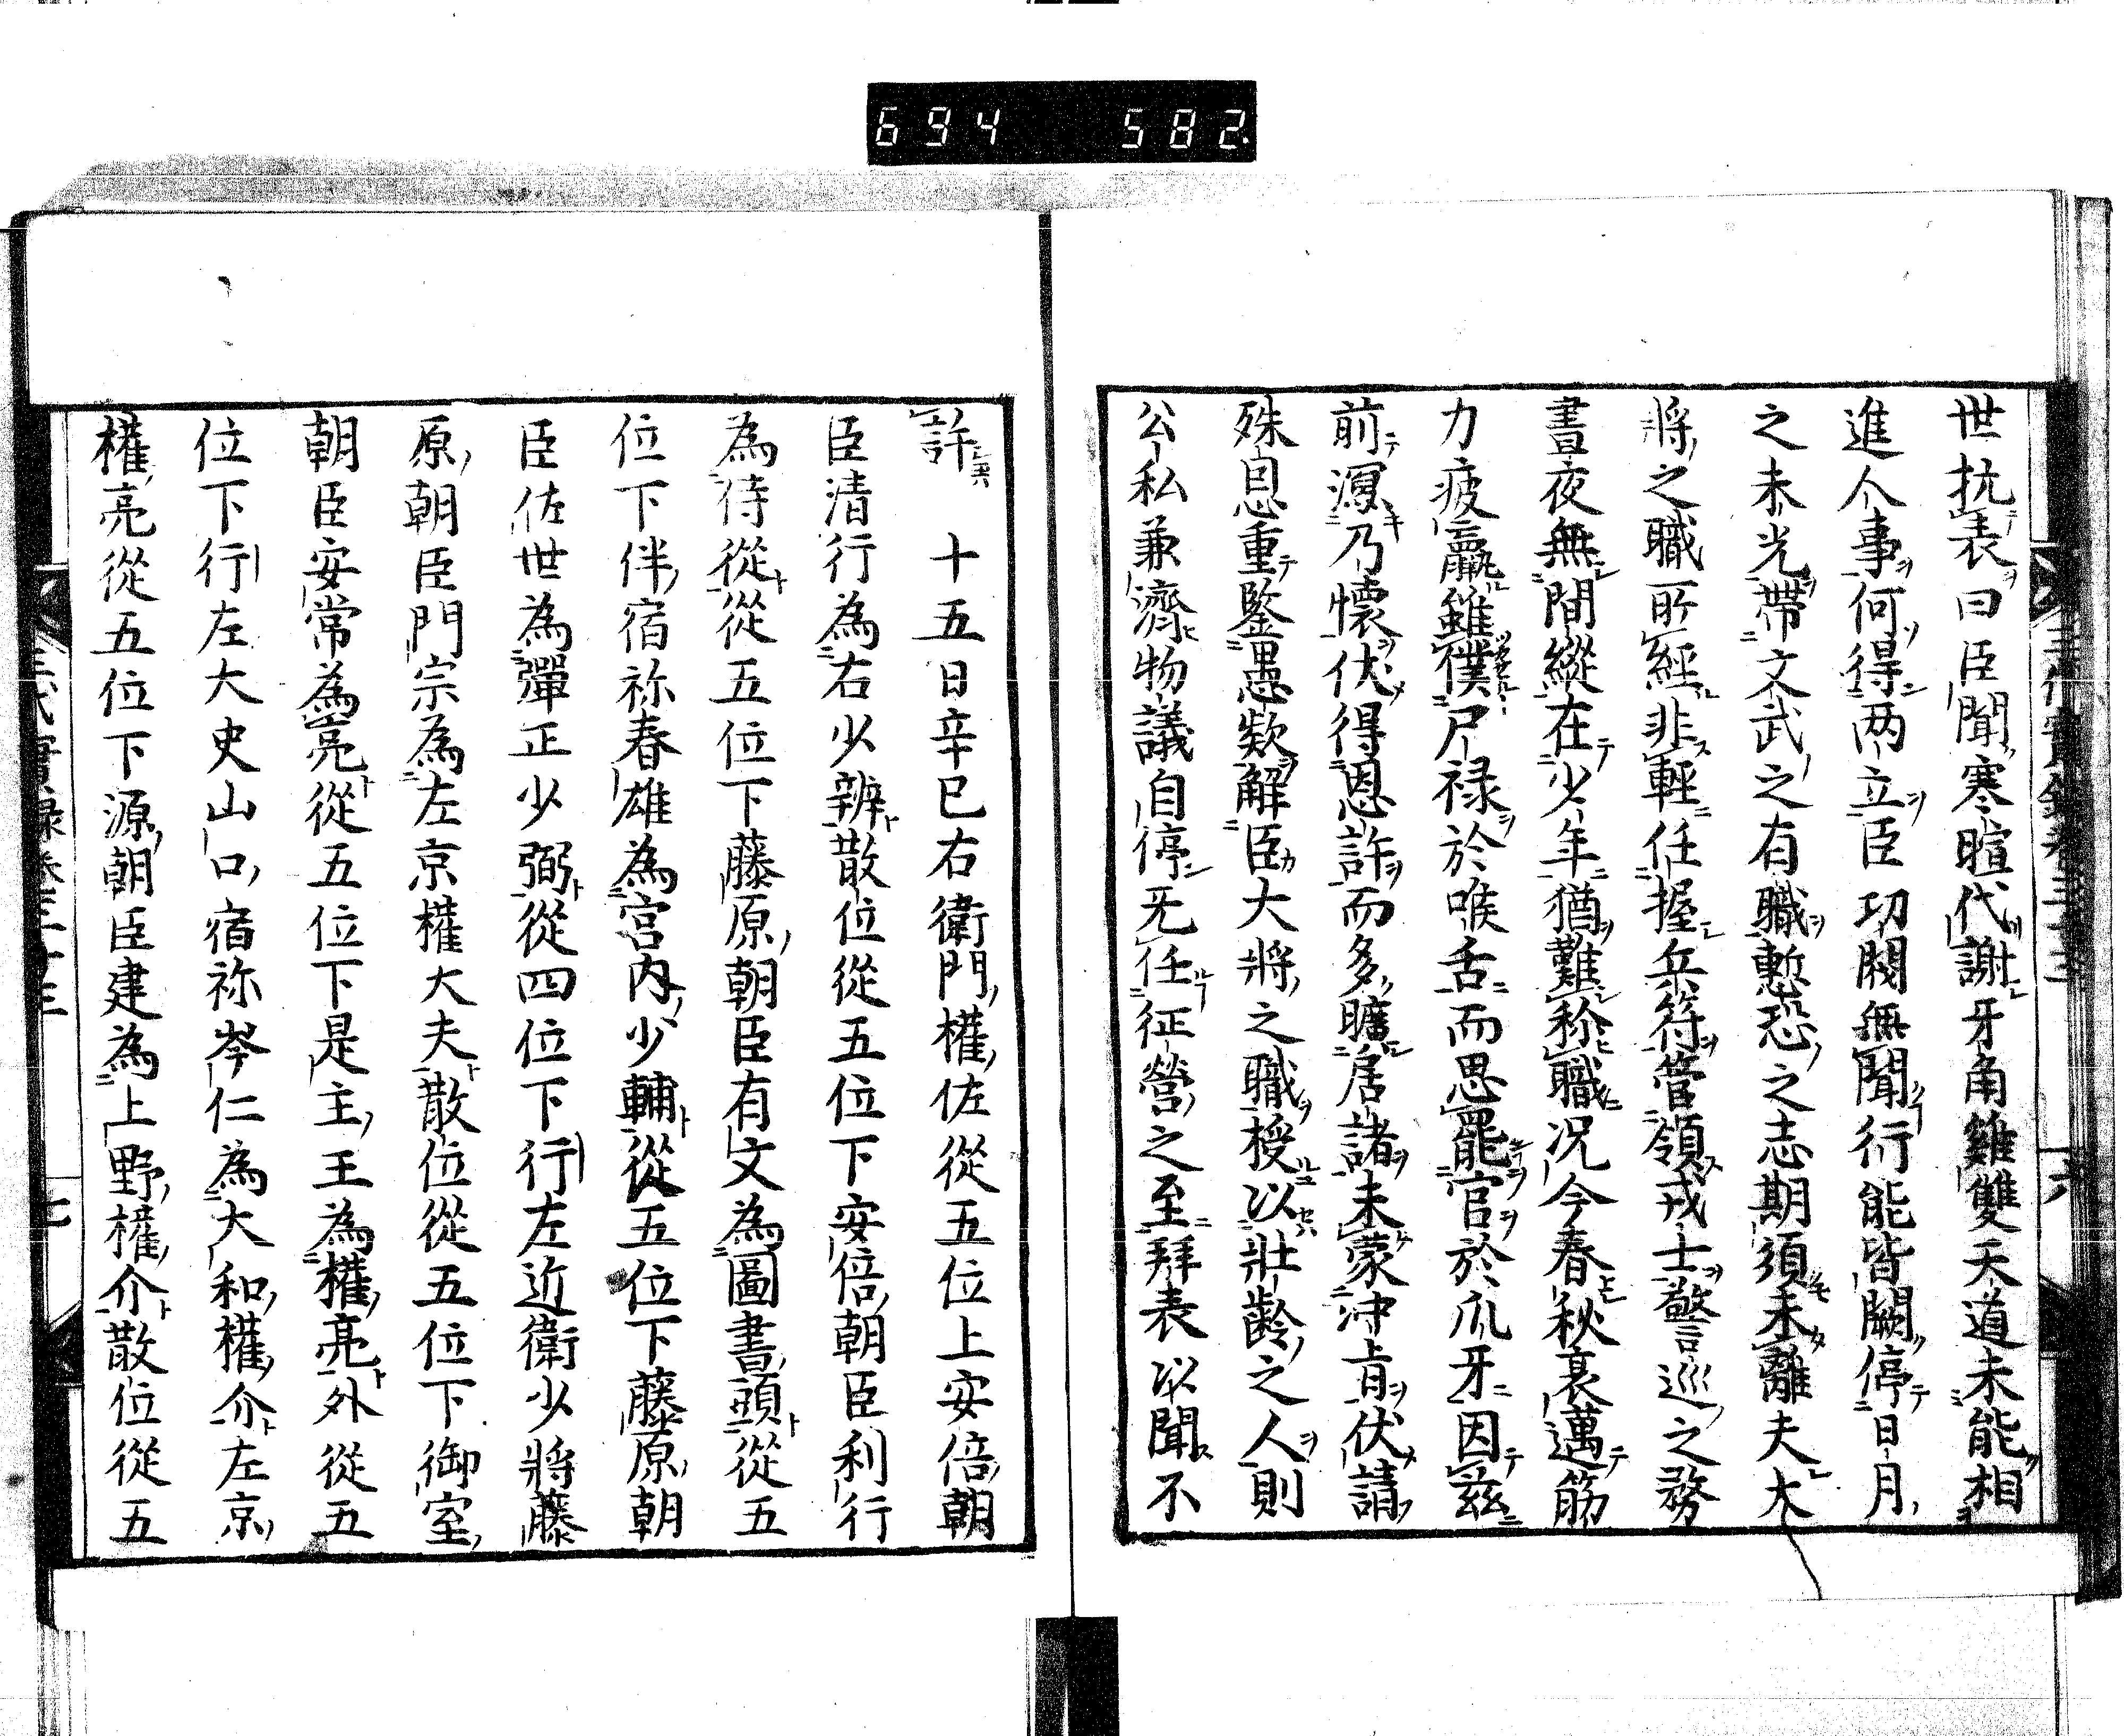 694 582.
世抗表曰臣聞寒暄代謝牙角雖雙天道未能相
進人事何得两立臣功閥無聞行能皆闕停日月
之末光帶文武之有職慙恐之志期須未離夫大
將之職所經非輕任握兵符管領戎士警巡之務
晝夜無間縱在少年猶難称職况今春秋衰邁筋
力疲羸雖僕尸禄於喉舌而思罷官於爪牙因茲
前濕乃懷伏得恩許而多曠居諸未蒙沖肯伏請
殊息重鑒愚欵解臣大將之職授以壯齡之人則
公私兼濟物議自停旡任征營之至拜表以聞不
許 十五日辛巳右衛門權佐從五位上安倍朝
臣清行為右少辨散位從五位下安倍朝臣利行
為侍從從五位下藤原朝臣有文為圖書頭從五
位下伴宿祢春雄為宮内少輔從五位下藤原朝
臣佐世為彈正少弼從四位下行左近衛少將藤
原朝臣門宗為左京權大夫散位從五位下御室
朝臣安常為亮從五位下是主王為權亮外從五
位下行左大史山口宿祢岑仁為大和權介左京
權亮從五位下源朝臣建為上野權介散位從五
三代實録卷三十三
六
七